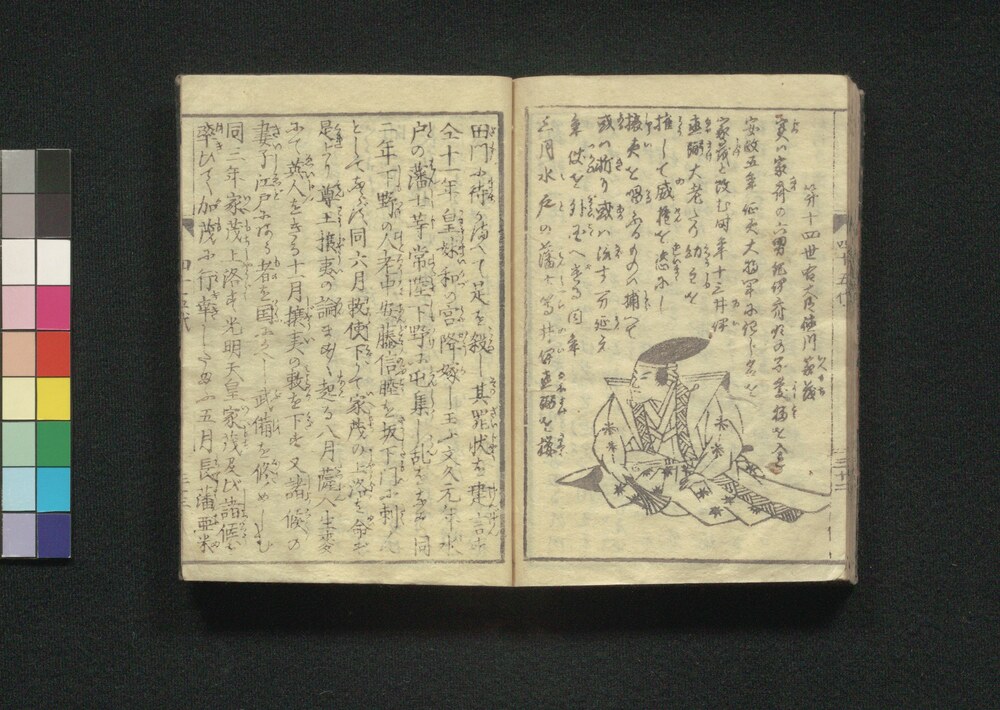 第十四世右大臣徳川家茂
家茂ハ家斉の六男紀伊斉順の子慶福を入る
安政五年 征夷大将軍に拝し名を
家茂と改む时年十三井伊
直弼大老たり幼主を
推して威権を恣にし
攘夷を唱ふるものを捕へて
或ハ斬り或ハ流す万延元
年 使を外国へ遣る同年
三月水戸の藩士等 井伊直弼を桜
田門に待うけて是を殺し其罪状を建言す
仝十一年 皇妹和の宮降嫁し玉ふ文久元年水
戸の藩士等常陸下野に屯集し乱をなす同
二年下野の人老中安藤信睦を坂下門に刺んと
として 同六月勅使下りて家茂の上洛を命ず
是より尊王攘夷の論ますます起る八月薩人生麦
にて英人をきる十月攘夷の勅を下す又諸侯の
妻子江戸にある者を国にかへし武備を修めしむ
同三年家茂上洛す光明天皇家茂及び諸侯を
率ひて加茂に行幸したまふ五月長藩亜米
四十五代
三十二